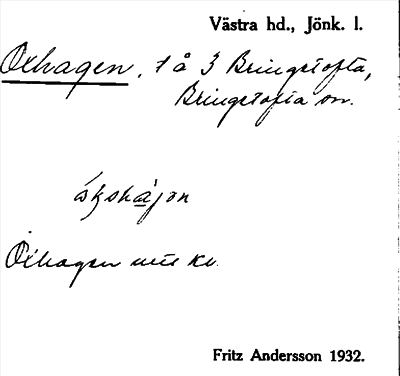 Västra hd., Jönk. l.
Oxhagen, 1 å 3 Bringetofta,
Bringetofta sn.
Oxhagen
Fritz Andersson 1932.